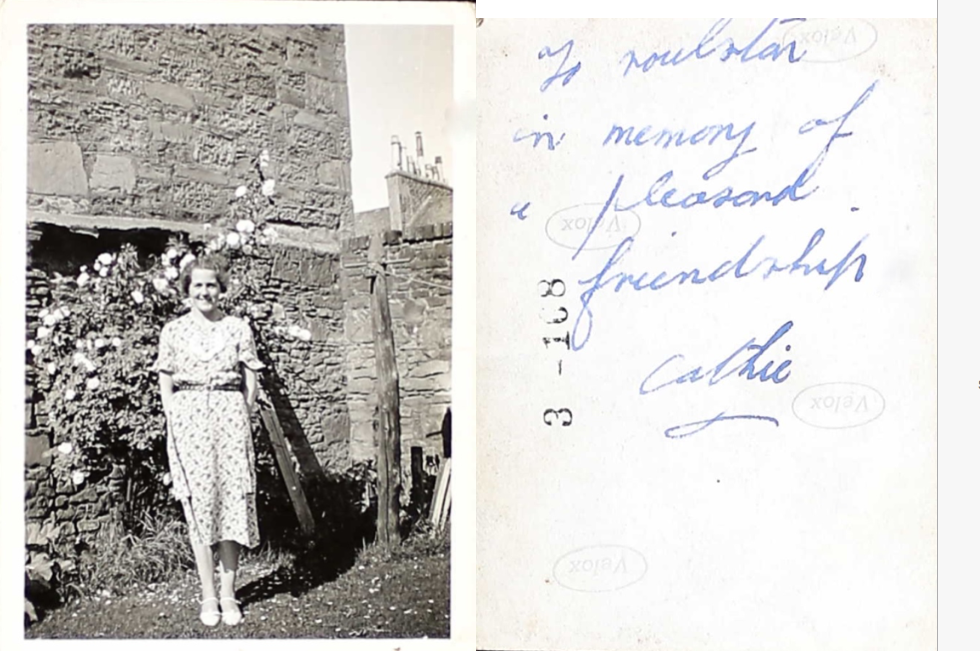 To
in memory of
a pleasand
friendship
Cathie
3 -168
Velox
Velox
Velox
Velox